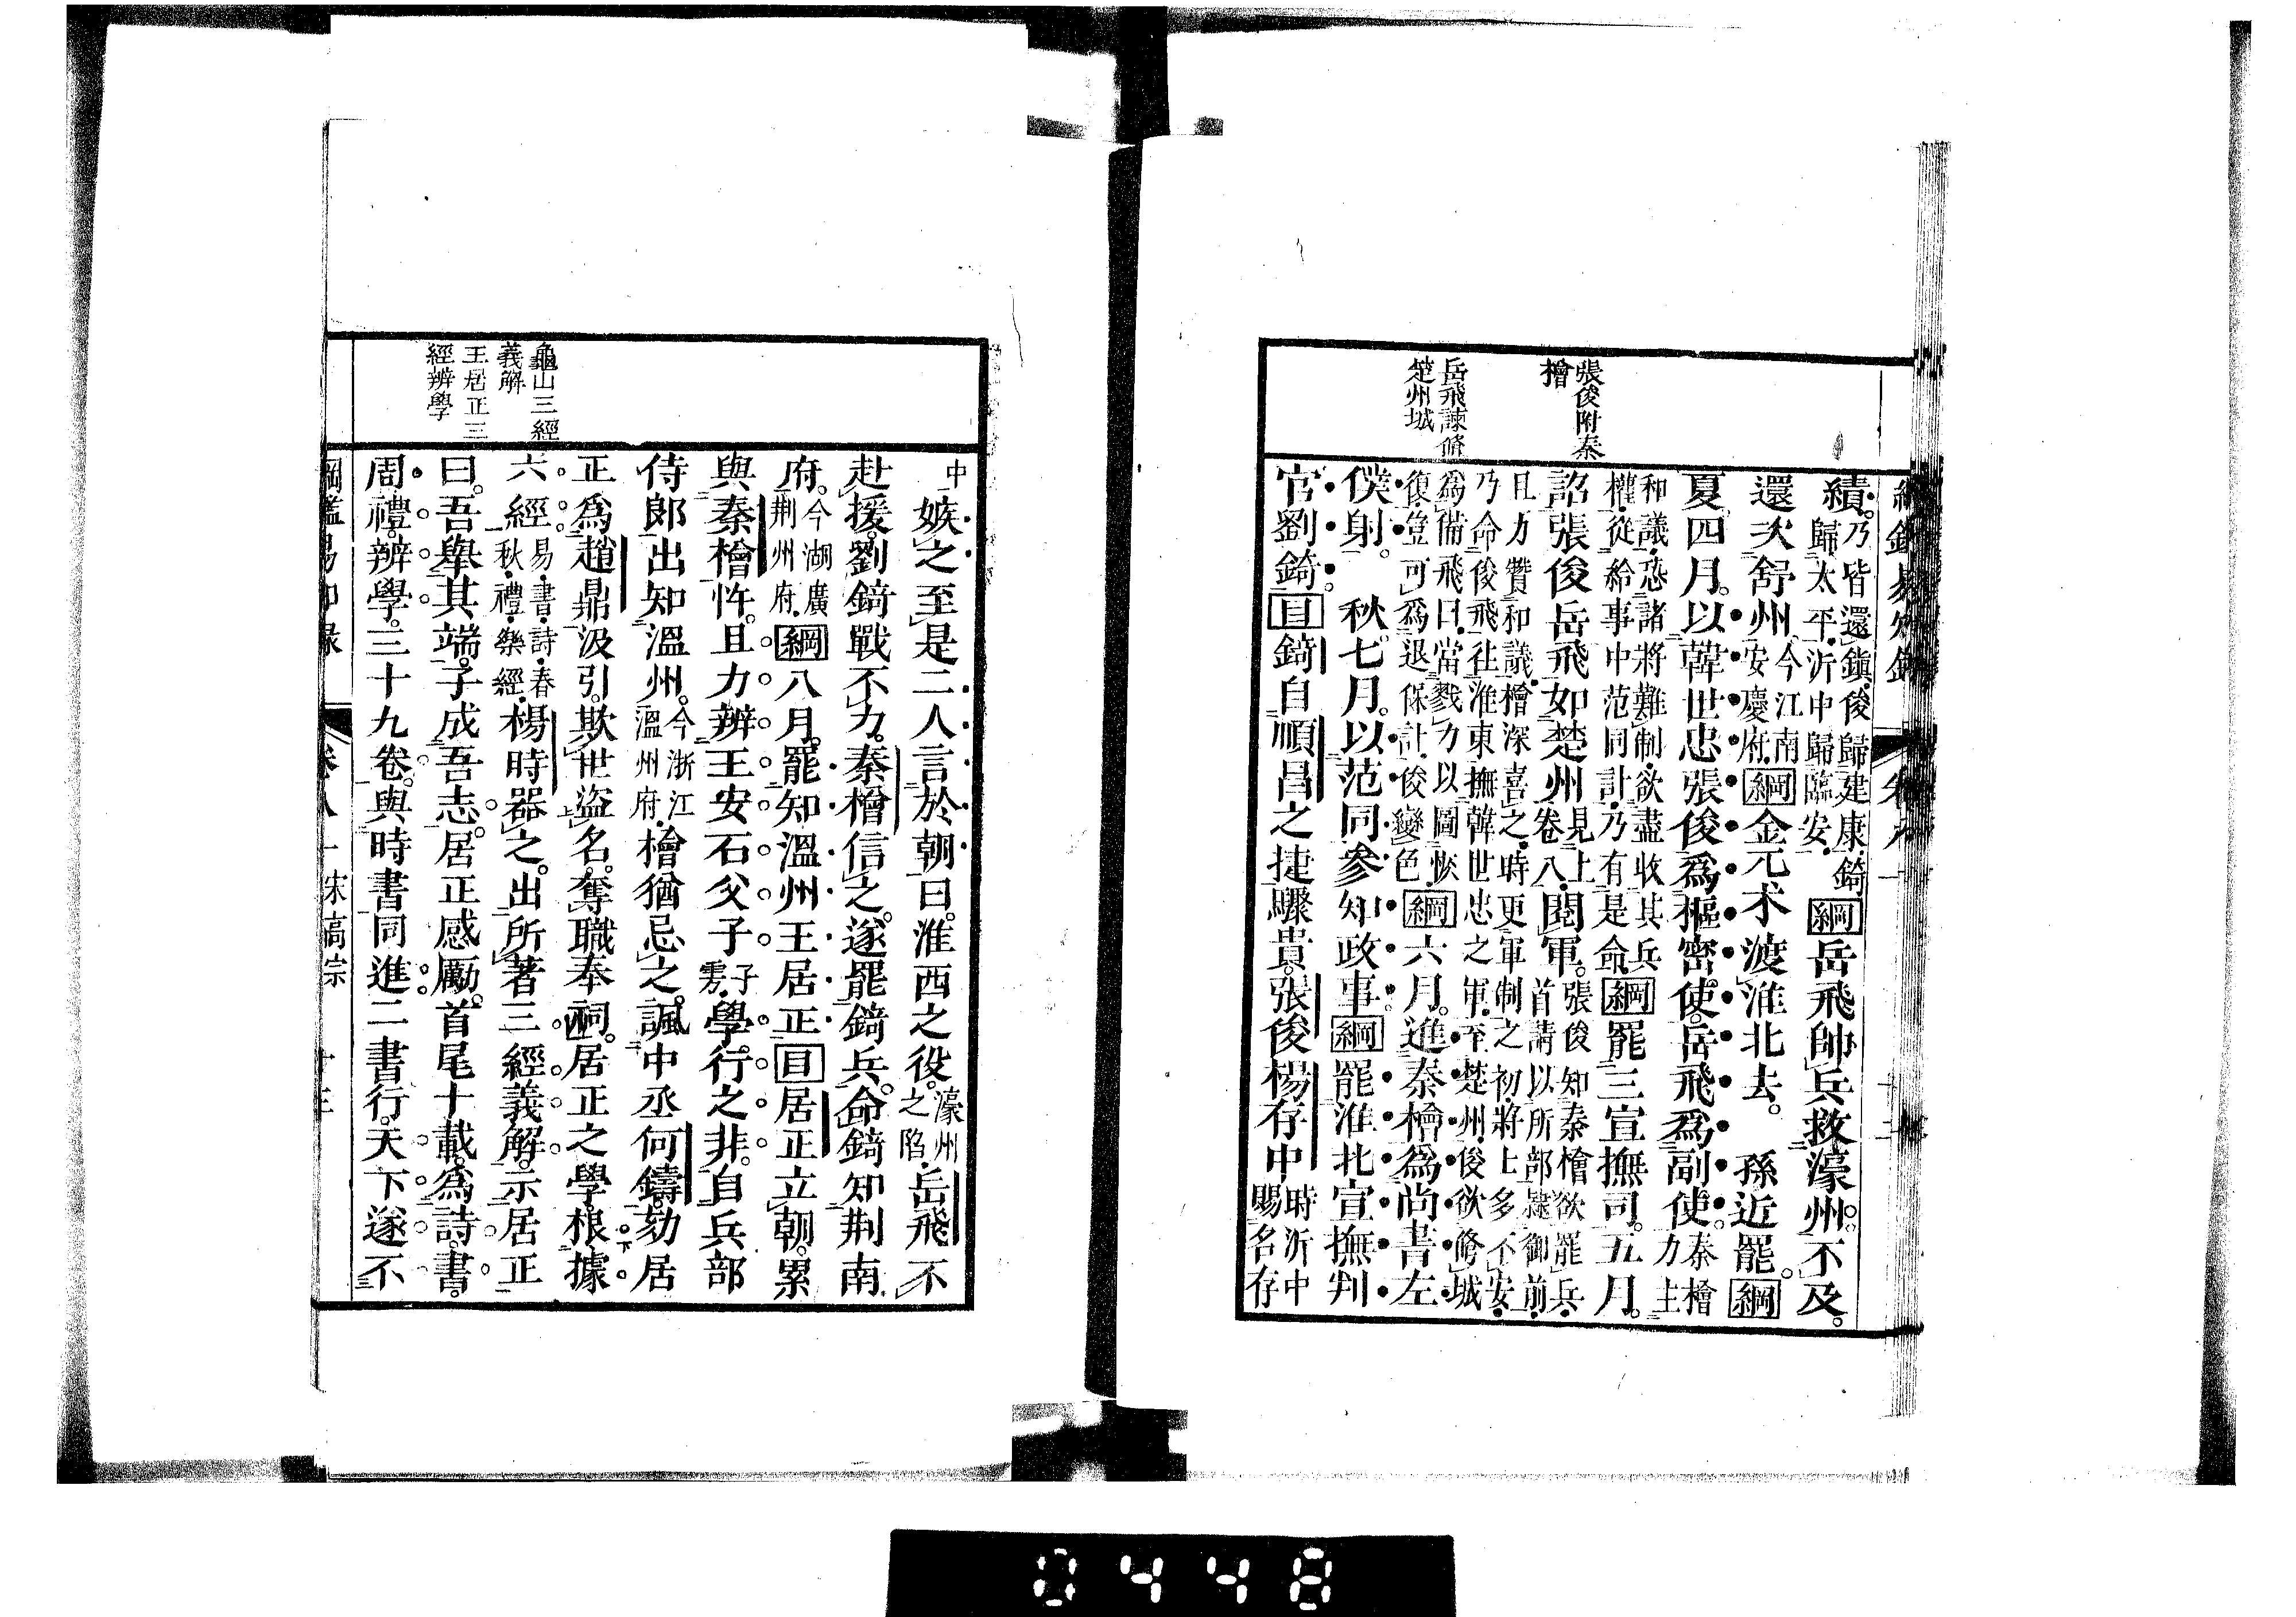 張俊附秦
檜
岳飛諫脩
楚州城
績乃皆還鎮俊歸建康錡歸太平沂中歸臨安綱岳飛帥兵救濠州不及
還次舒州今江南安慶府綱金兀术渡淮北去 孫近罷綱
夏四月以韓世忠張俊爲樞密使岳飛爲副使秦檜力主
和議恐諸將難制欲盡收其兵權從給事中范同計乃有是命綱罷三宣撫司五月
詔張俊岳飛如楚州見上卷八閱軍張俊知秦檜欲罷兵首請以所部隸御前
且力贊和議檜深喜之時更軍制之初將士多不安乃命俊飛往淮東撫韓世忠之軍至楚州俊欲脩城
爲備飛曰當戮力以圖恢復豈可爲退保計俊變色綱六月進秦檜爲尚書左
僕射 秋七月以范同參知政事綱罷淮北宣撫判
官劉錡目錡自順昌之捷驟貴張俊楊存中時沂中賜名存
龜山三經
義解
王居正三
經辨學
中嫉之至是二人言於朝曰淮西之役濠州之陷岳飛不
赴援劉錡戰不力秦檜信之遂罷錡兵命錡知荆南
府今湖廣荆州府綱八月罷知溫州王居正目居正立朝累
與秦檜忤且力辨王安石父子子雱學行之非自兵部
侍郎出知溫州今浙江溫州府檜猶忌之諷中丞何鑄劾居
正爲趙鼎汲引欺世盜名奪職奉祠居正之學根據
六經易書詩春秋禮樂經楊時器之出所著三經義解示居正
曰吾舉其端子成吾志居正感厲首尾十載爲詩書
周禮辨學三十九卷與時書同進二書行天下遂不
宋高宗
0448